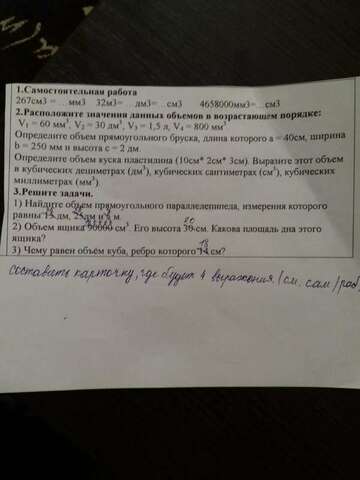 1.Самостоятельная работа
267см3 = …мм3 32м3=…дм3=…см3 4658000мм3=…см3
2.Расположите значения данных объемов в возрастающем порядке:
V₁ = 60 мм³, V₂ = 30 дм³, V₃ = 1,5 л, V₄ = 800 мм³
Определите объем прямоугольного бруска, длина которого а = 40см, ширина
b = 250 мм и высота с = 2 дм
Определите объем куска пластилина (10см* 2см* 3см). Выразите этот объем
в кубических дециметрах (дм³), кубических сантиметрах (см³), кубических
миллиметрах (мм³)
3.Решите задачи.
1) Найдите объем прямоугольного параллелепипеда, измерения которого
равны дм, 25дм и м.
2) Объем ящика 90000 см³. Его высота 30 см. Какова площадь дна этого
20
ящика?
3) Чему равен объём куба, ребро которого см?
18
составить карточку, где будет 4 выражения. (см. сам/раб